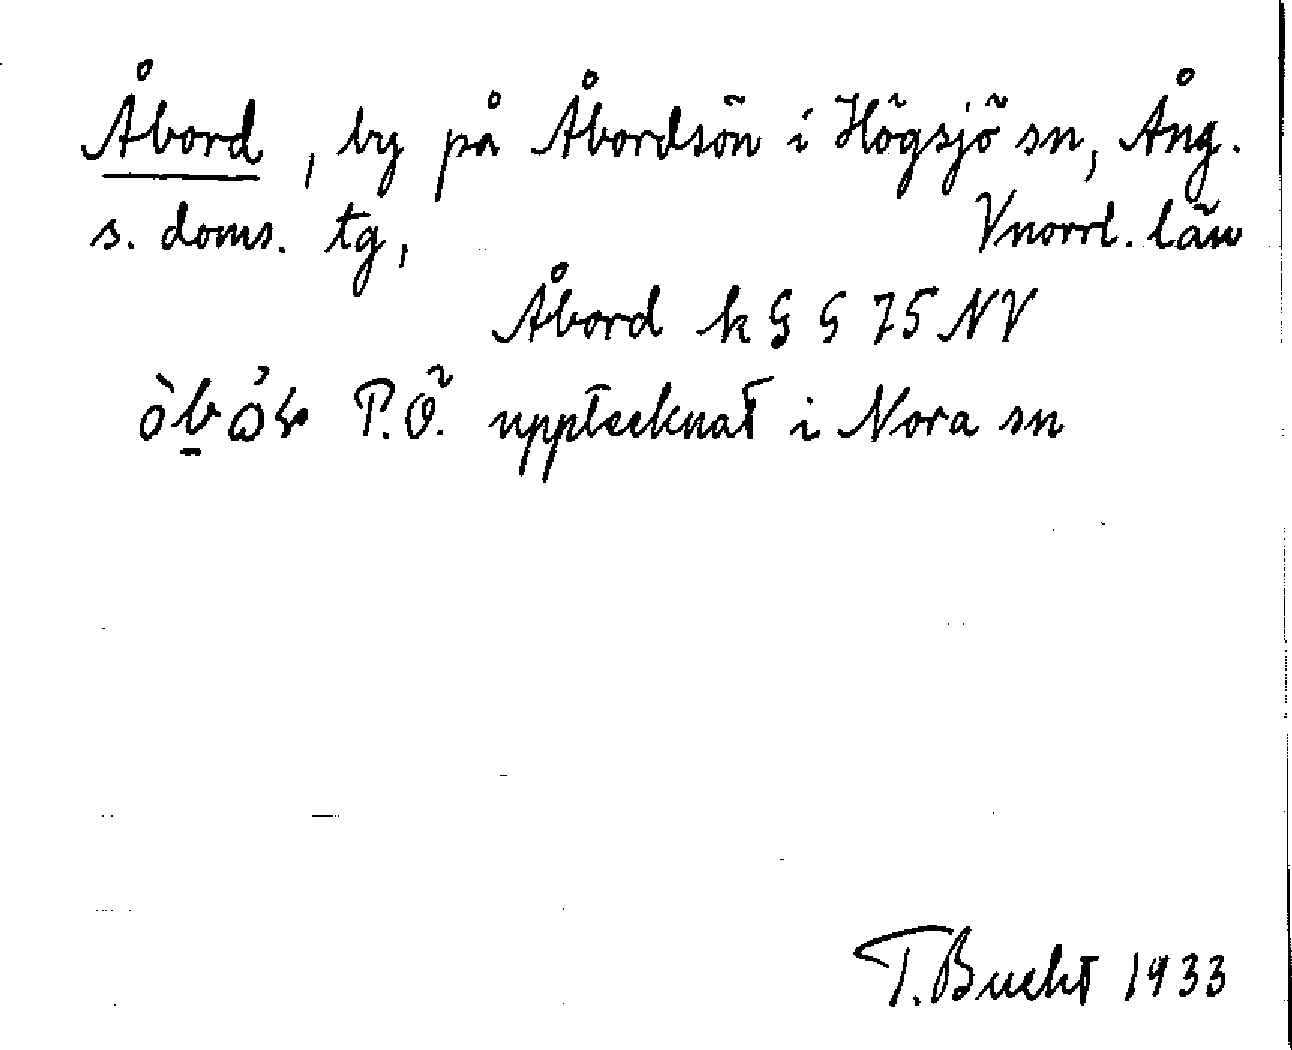 Åbord, by på Åbordsön i Högsjö sn, Ång.
s. doms. tg, Vnorrl. län
Åbord k G S 75 NV
P.Ö. upptecknat i Nora sn
T. Bucht 1933